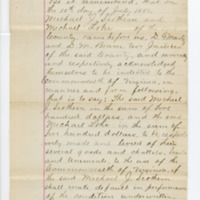 it remembered, that on
10th day of July 1882
Michael J. Leehern and
Michael Loke of
County, came before us, D. 
and D. M. two Justices
of the said County, and
and respectively acknowledged
themselves to be indebted to the
Commonwealth of Virginia, in
manner and form following,
that is to say; The said Michael
J. Leehern in the sum of five
hundred dollars, and the said
Michael Loke in the sum of
five hundred dollars, to be respect-
ively made and levied of their
several goods and chattels, lands
and tenements to the use of the
Commonwealth of Virginia, if
the said Michael J. Leehern
shall make default in performance
of the condition underwritten